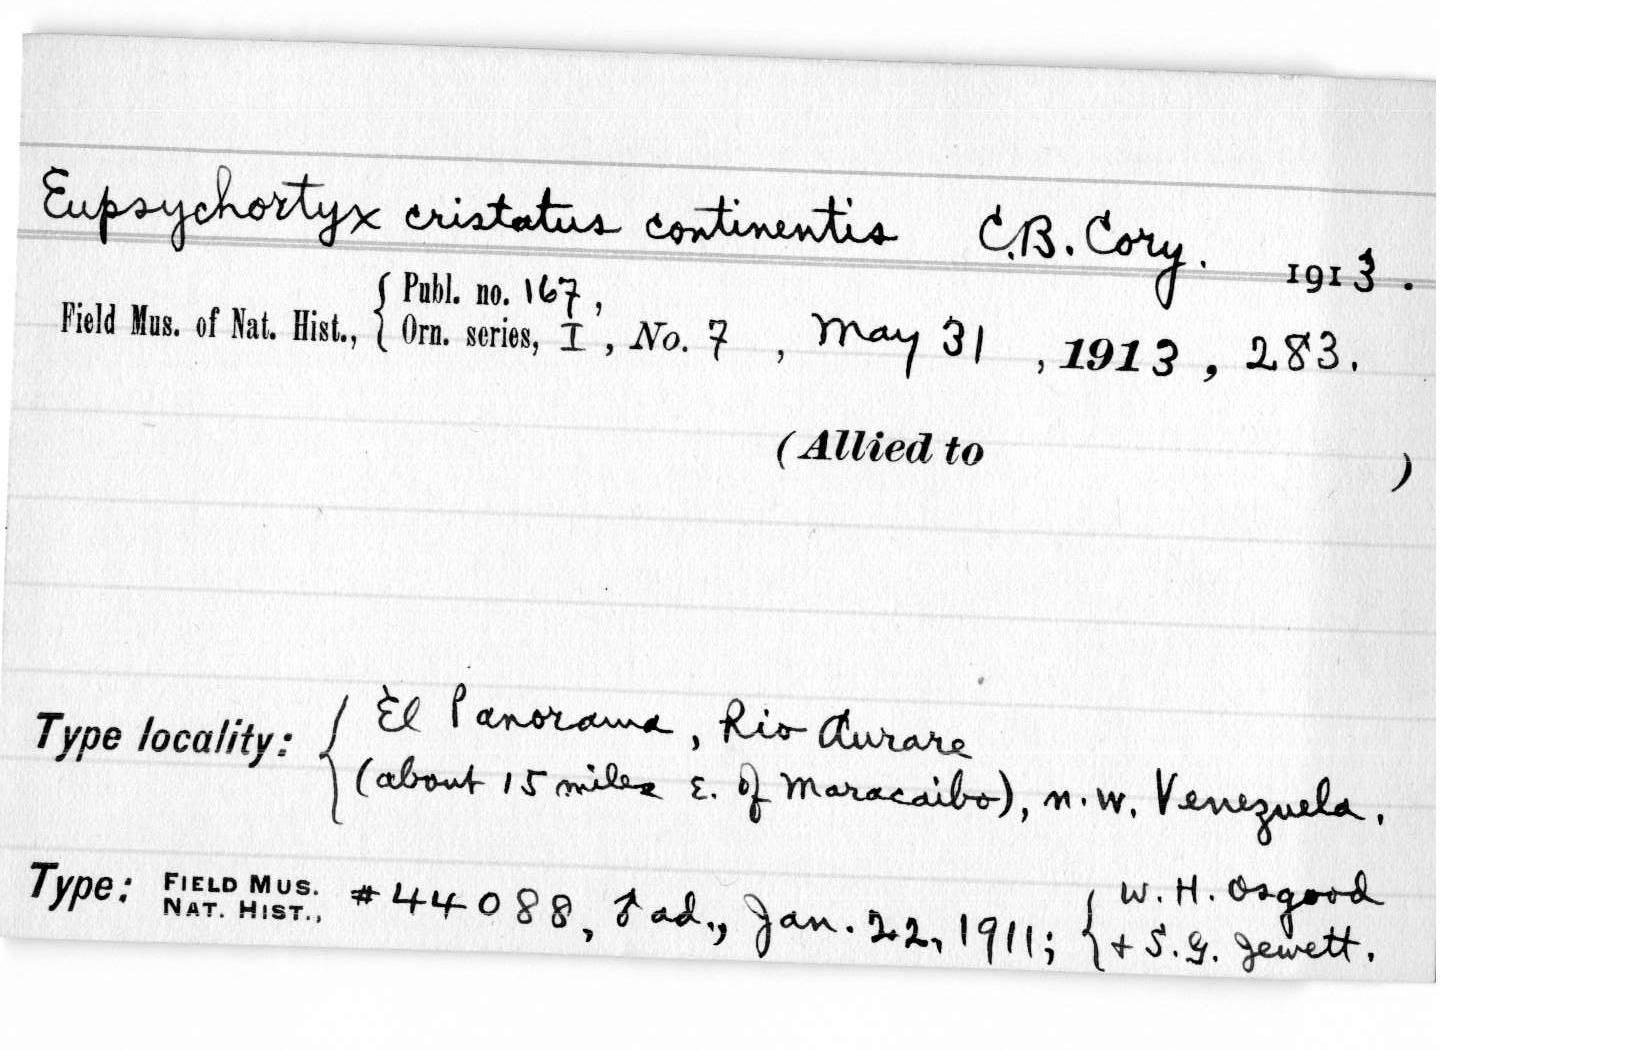 Eupsychortyx cristatus continentis C.B. Cory. 1913.
Field Mus. of Nat. Hist., { Publ. no. 167,
Orn. series, I, No. 7, May 31, 1913, 283.
(Allied to )
Type locality: { El Panorama, Rio Aurare
(about 15 miles E. of Maracaibo), n.w. Venezuela.
Type: FIELD MUS. NAT. HIST., #44088, ♂ ad., Jan. 22, 1911; { W. H. Osgood
+ S.G. Jewett.